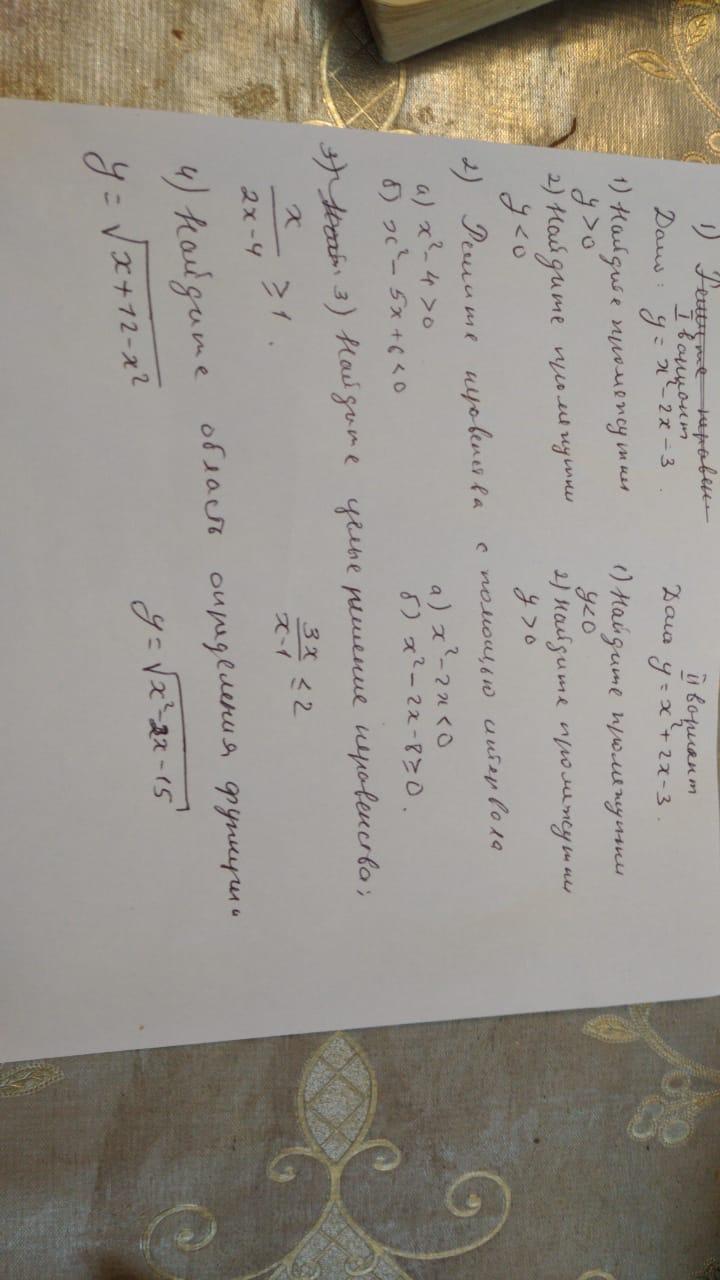 1) Решите неравен-
I вариант
II вариант
Дано: y = x² - 2x - 3.
Дано y = x² + 2x - 3.
1) Найдите промежутки
y > 0
1) Найдите промежутки
y < 0
2) Найдите промежутки
y < 0
2) Найдите промежутки
y > 0
2) Решите неровенства с помощью интервола
а) x² - 4 > 0
а) x² - 2x < 0
б) x² - 5x + 6 < 0
б) x² - 2x - 8 ≥ 0.
3) Найдите целые решение неравенства;
x / (2x - 4) ≥ 1.
3x / (x - 1) ≤ 2
4) Найдите область определения функции
y = √(x + 12 - x²)
y = √(x² - 2x - 15)